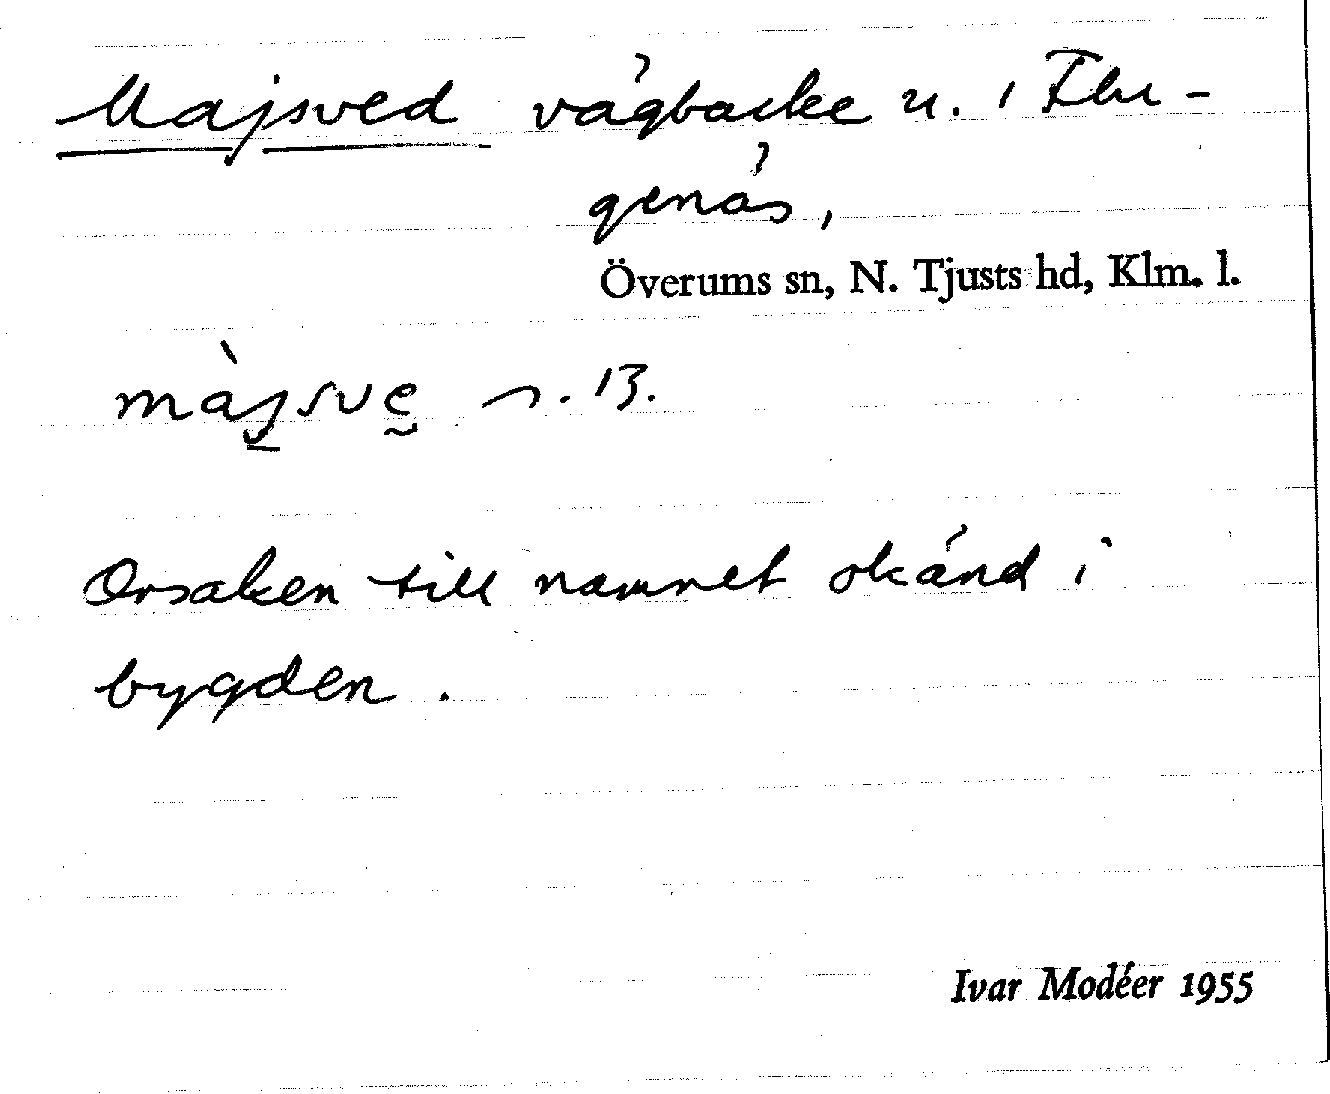 Majsved vägbacke n. i Flu-
genäs,
Överums sn, N. Tjusts hd, Klm. l.
màjsve s. 13.
Orsaken till namnet okänd i
bygden.
Ivar Modéer 1955